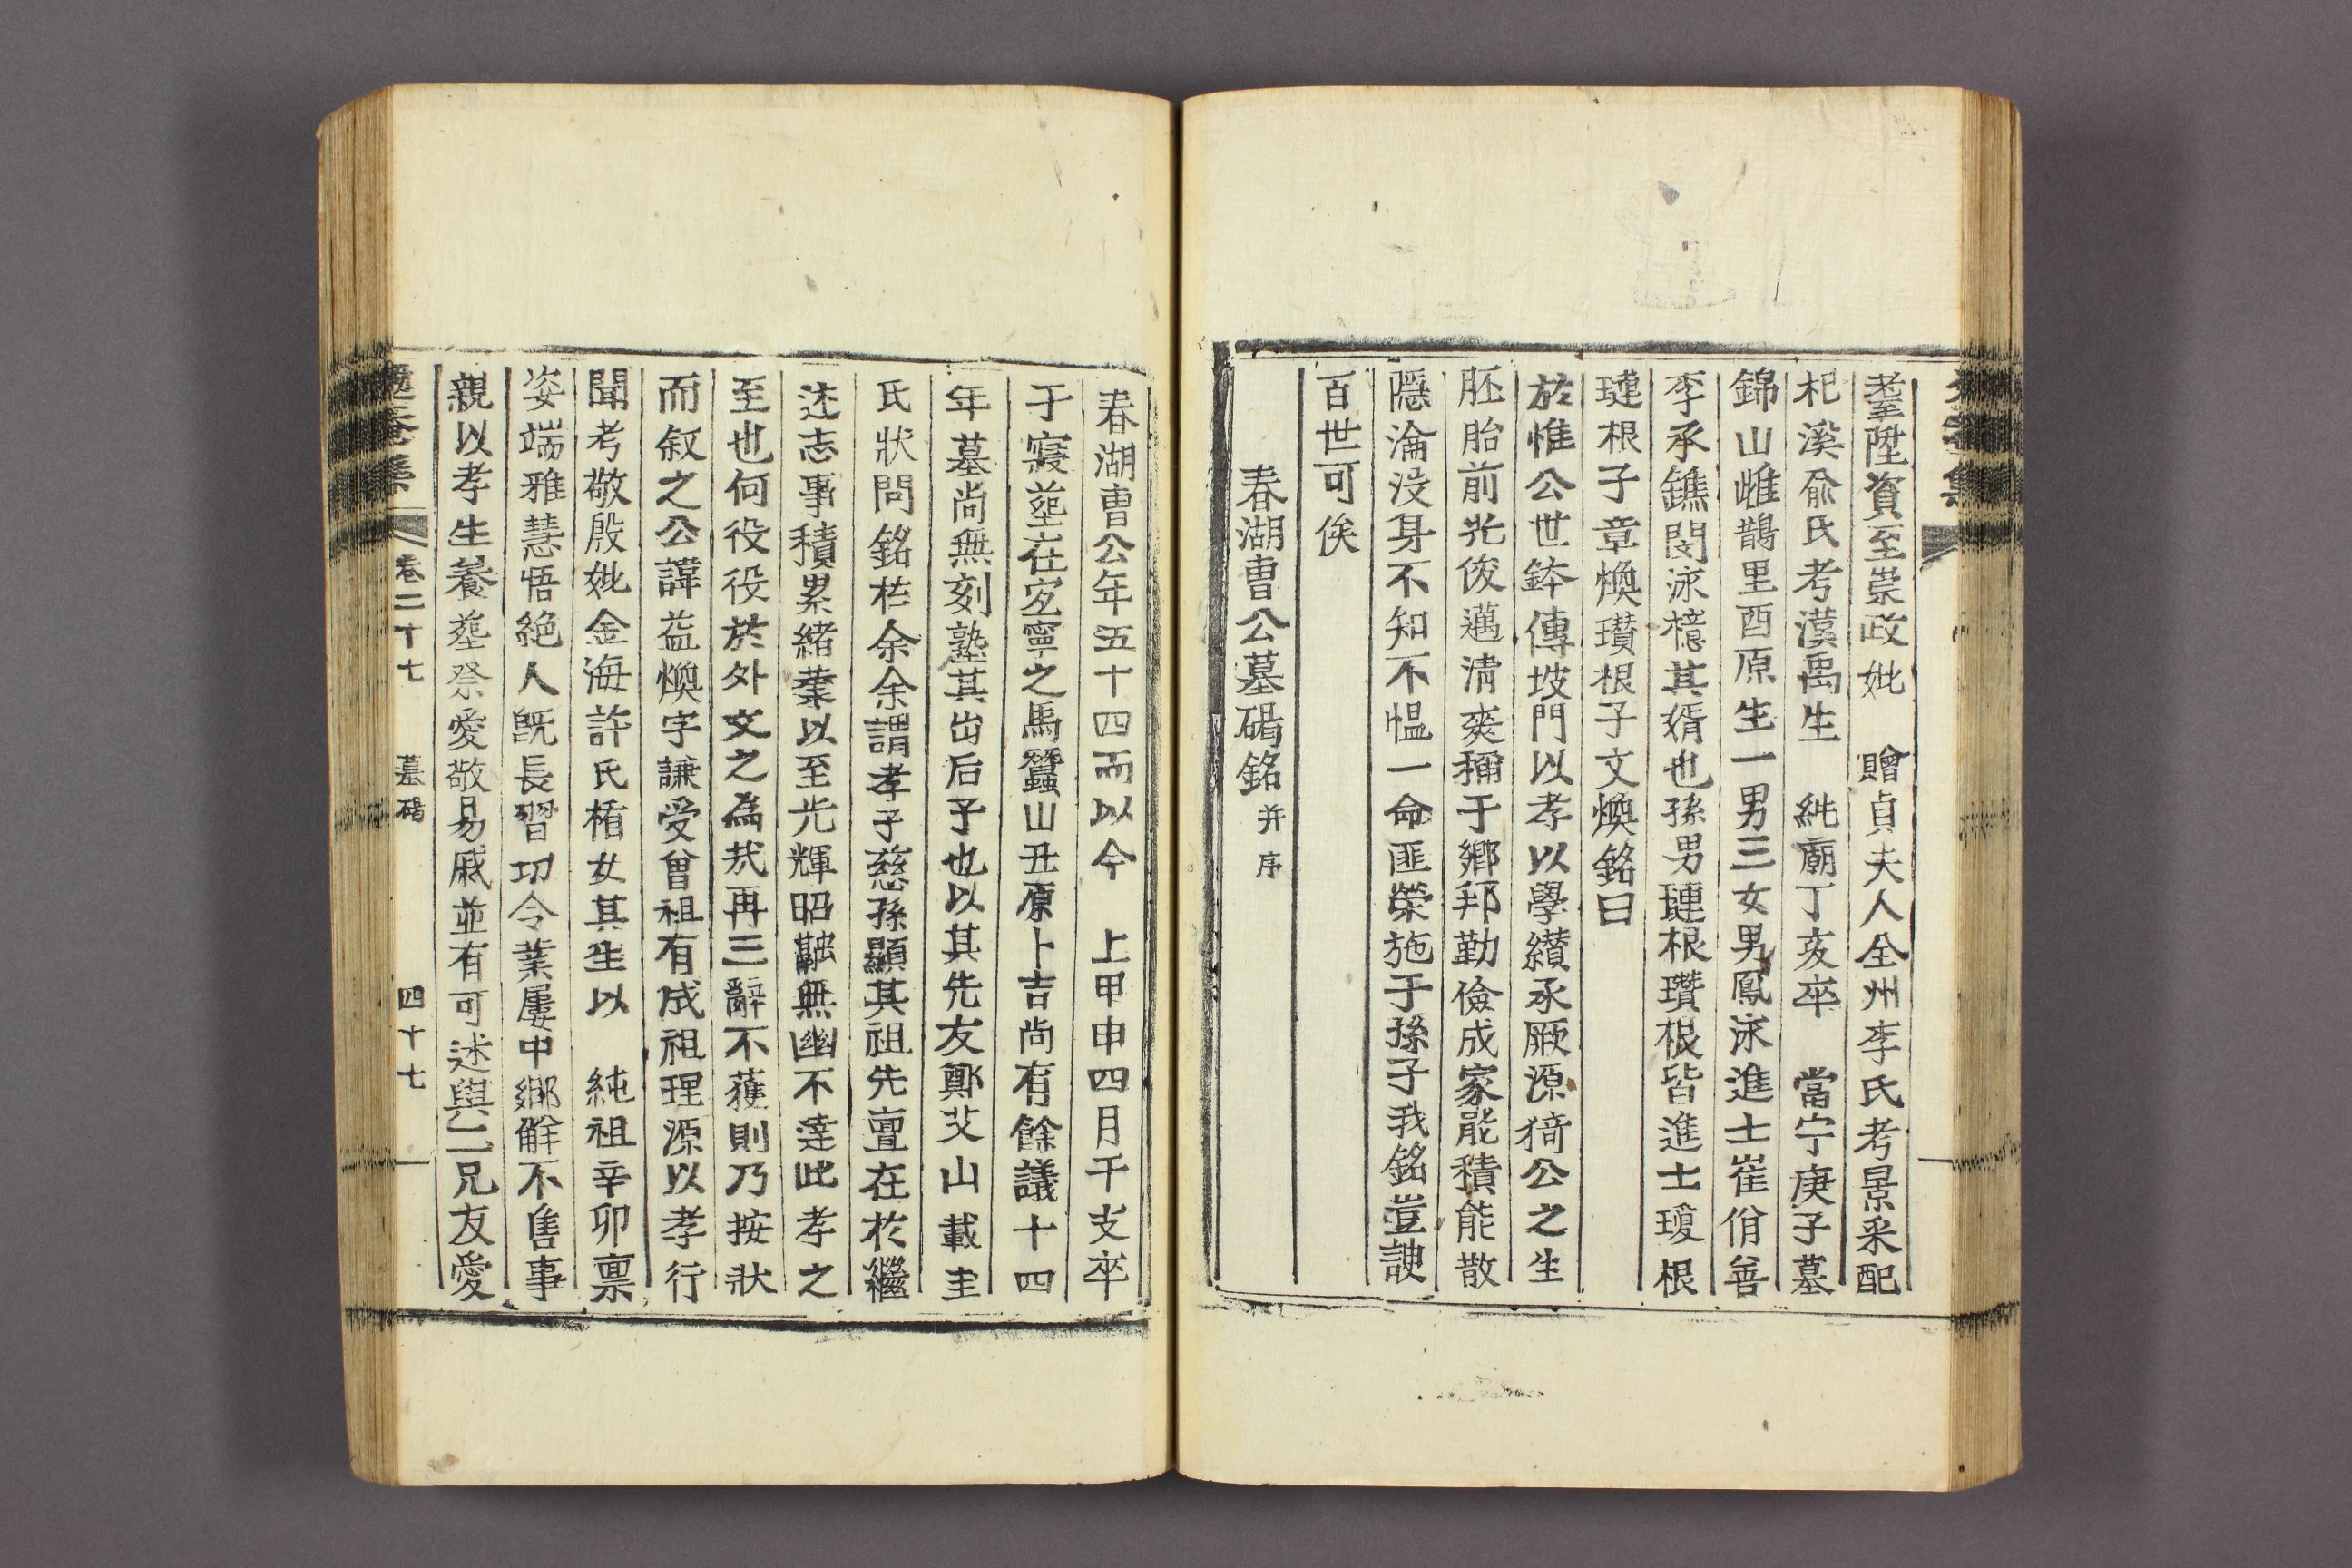 耋陞資至崇政妣 贈貞夫人全州李氏考景采配
杞溪兪氏考漢禹生 純廟丁亥卒 當宁庚子墓
錦山雌鵲里酉原生一男三女男鳳泳進士崔佾善
李承鐎閔泳檍其婿也孫男璉根瓚根皆進士瓊根
璉根子章煥瓚根子文煥銘曰
於惟公世鉢傳坡門以孝以學纘承厥源猗公之生
胚胎前光俊邁淸爽稱于鄕邦勤儉成家能積能散
隱淪沒身不知不慍一命匪榮施于孫子我銘豈諛
百世可俟
春湖曺公墓碣銘 并序
春湖曺公年五十四而以今 上甲申四月干支卒
于寢塟在宜寧之馬蠶山丑原卜吉尙有餘議十四
年墓尙無刻塾其出后子也以其先友鄭艾山載圭
氏狀問銘於余余謂孝子慈孫顯其祖先亶在於繼
述志事積累緖業以至光輝昭融無幽不達此孝之
至也何役役於外文之為哉再三辭不獲則乃按狀
而叙之公諱益煥字謙受曾祖有成祖理源以孝行
聞考敬殷妣金海許氏楯女其生以 純祖辛卯禀
姿端雅慧悟絶人旣長習功令業屢中鄕解不售事
親以孝生養塟祭愛敬易戚並有可述與二兄友愛
卷二十七 墓碣 四十七